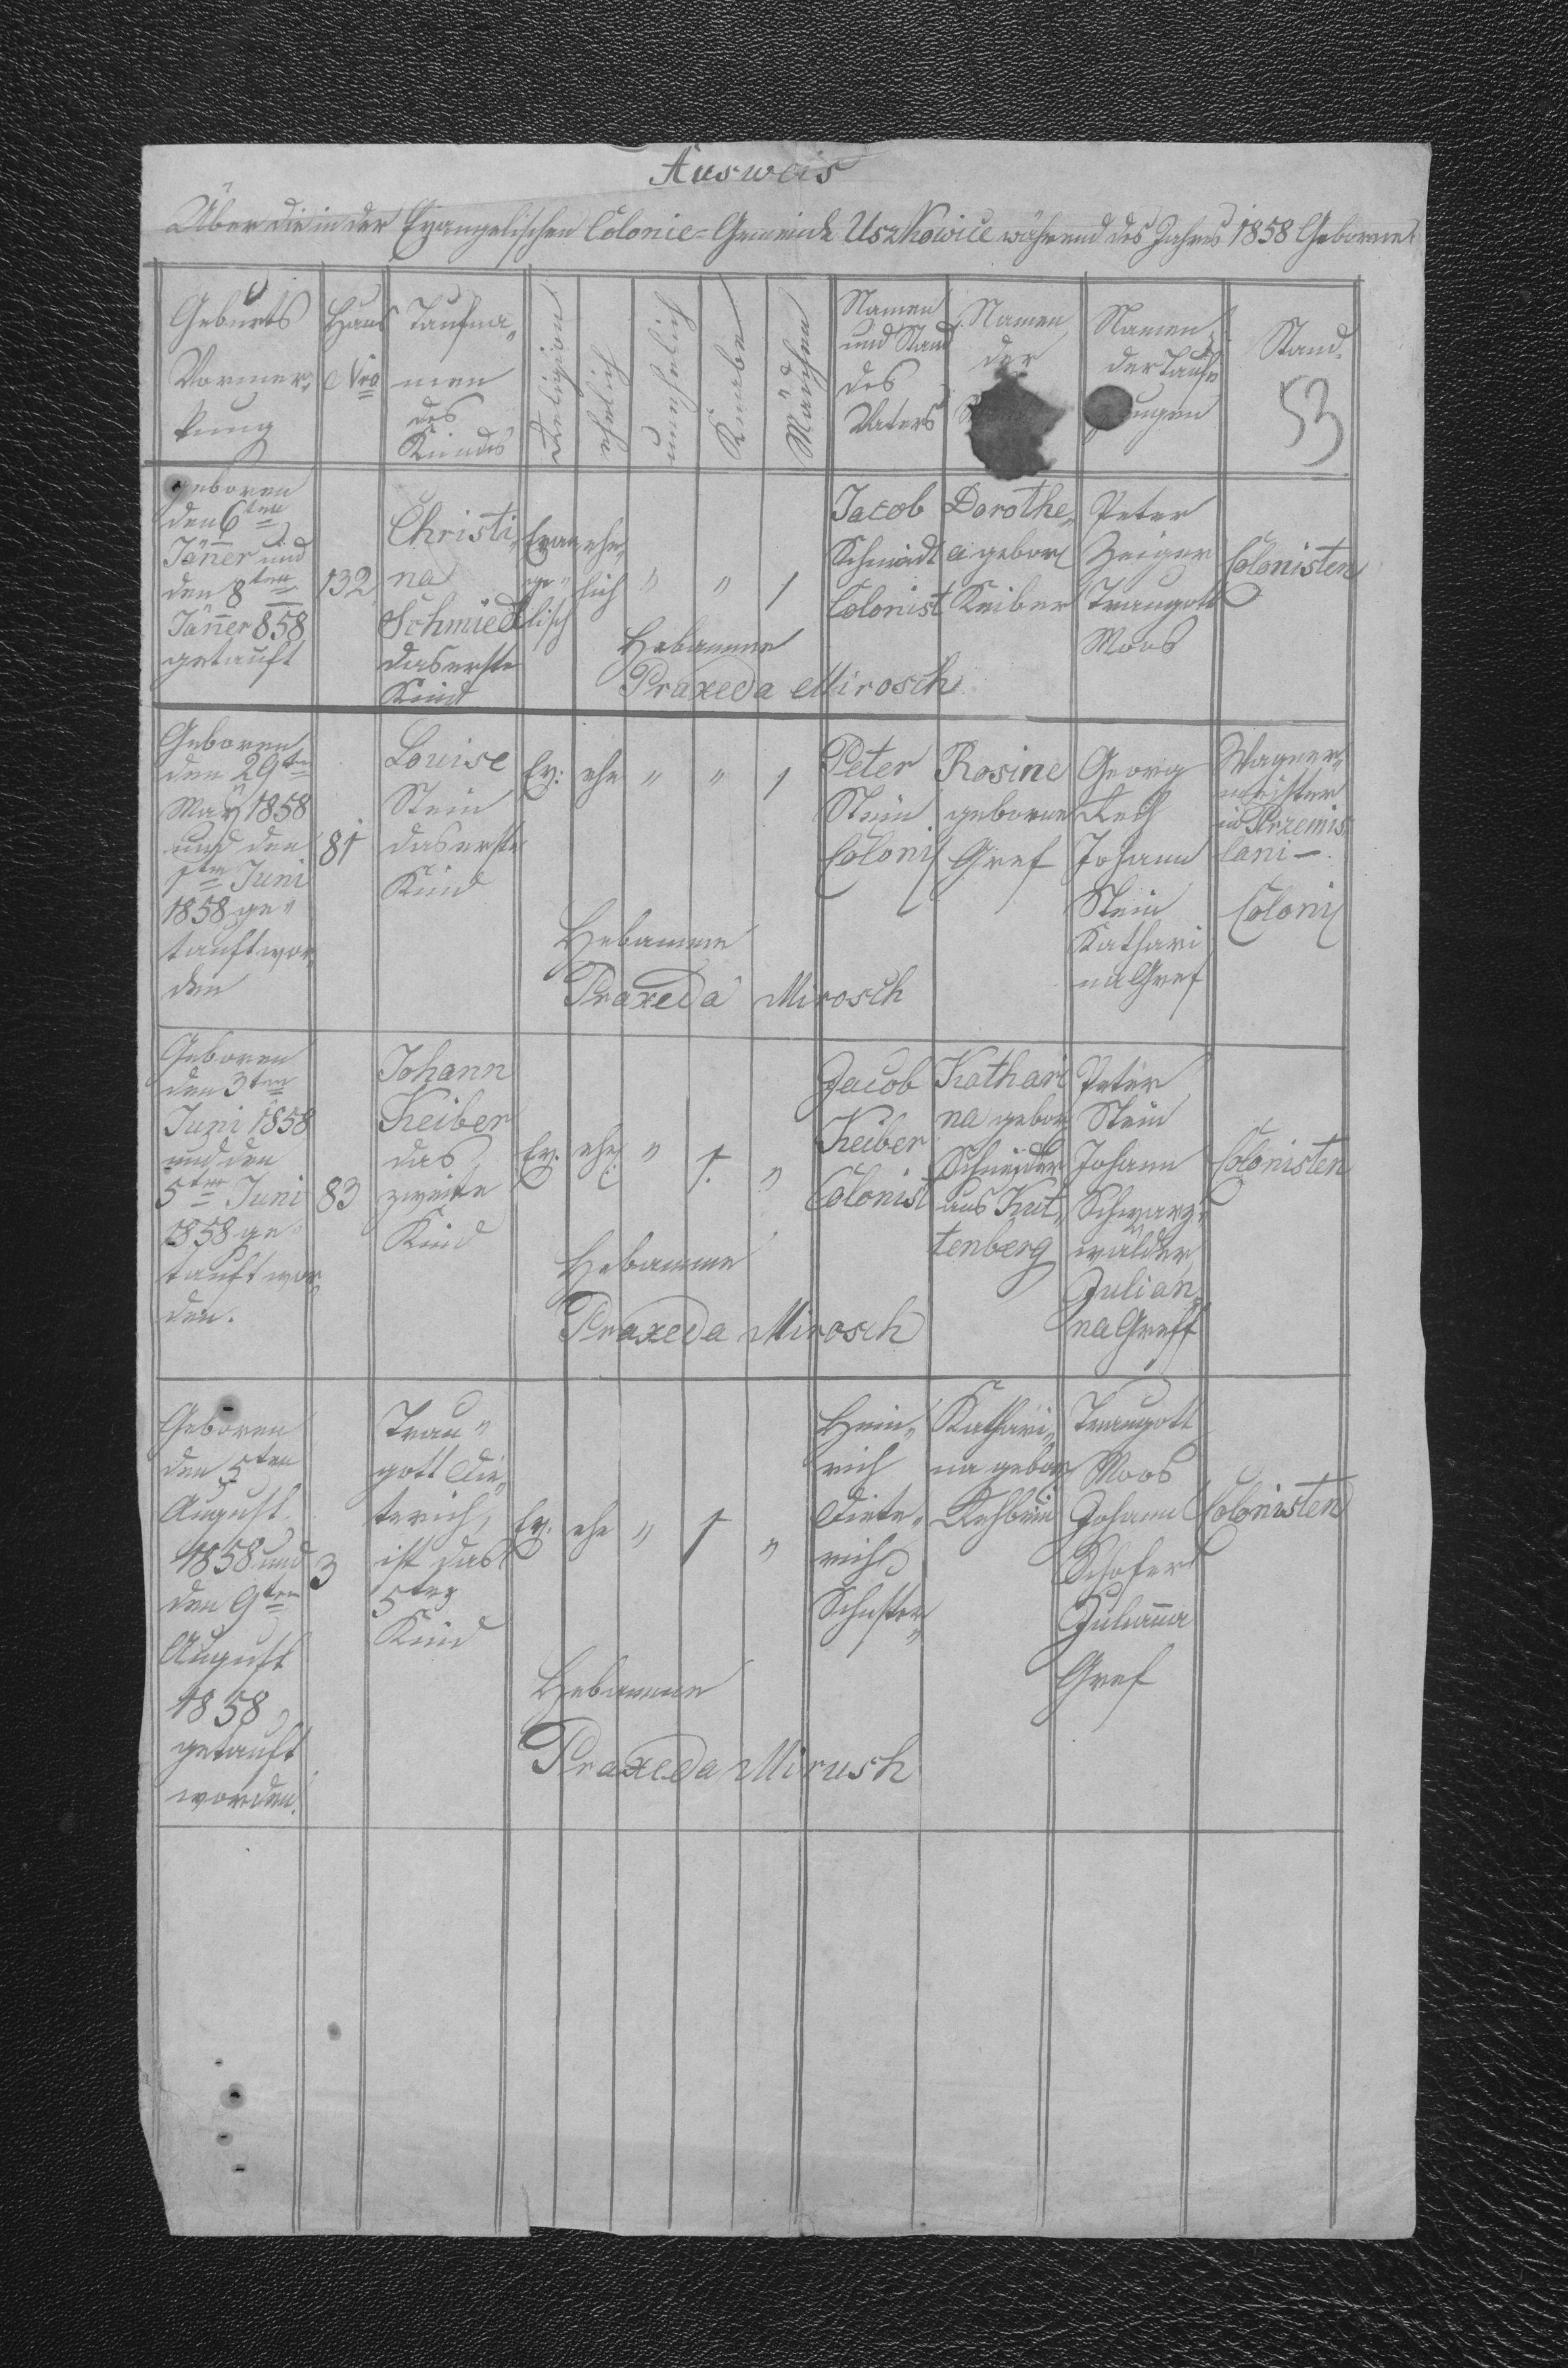 Ausweis
Über die in der Evangelischen Colonie-Gemeinde Uszkowice während des Jahres 1858 Geborne.
Geburts
Vormer,
kung
Haus
Nro
Taufna„
men
des
Kindes
Religion
ehelich
unehelich
Knabe
Mädchen
Namen
und Stand
des
Vaters
Namen
der
Namen
der Tauf
zeugen
Stand.
53
geboren
den 6ten
Jäner und
den 8ten
Jäner 858
getauft
132
Christi„
na
Schmied
das erste
Kind
Evan
ge„
lisch
ehe„
lich
„
„
1
Jacob
Schmidt
Colonist
Dorothe„
a gebor
Keiber
Peter
Zeiger
Traugott
Moos
Colonisten
Hebamme
Praxeda Mirosch
Geboren
den 29ten
May 1858
und den
1ten Juni
1858 ge„
tauft wor„
den
81
Louise
Stein
das erste
Kind
Ev:
ehe
„
„
1
Peter
Stein
Colonist
Rosine
geborne
Gref
Georg
Reth
Johann
Stein
Kathari
na Gref
Wagner„
meister
in Przemis
lani –
Colonist
Hebamme
Praxeda Mirosch
Geboren
den 3ten
Juni 1858
und den
5ten Juni
1858 ge„
tauft wor„
den.
83
Johann
Keiber
das
zweite
Kind
Ev.
ehe
„
1.
„
Jacob
Keiber
Colonist
Kathari
na gebor
Schneider
aus Kut„
tenberg
Peter
Stein
Johann
Schwarz„
wälder
Julian„
na Greff
Colonisten
Hebamme
Praxeda Mirosch
Geboren
den 5ten
August
1858 und
den 9ten
August
1858
getauft
worden.
3
Trau„
gott Die„
terich,
ist das
5tes
Kind
Ev.
ehe
„
1
„
Hein„
rich
Diete„
rich
Schuster„
Kathari„
na gebor
Traugott
Moos
Johann
Schofer
Julianna
Gref
Colonisten
Hebamme
Praxeda Mirush